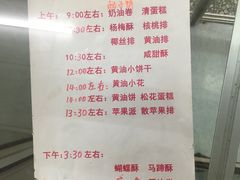 上午：9:00左右：奶油卷 清蛋糕
:30左右：杨梅酥 核桃排
椰丝排 黄油排
10:30左右： 咸甜酥
12:00左右：黄油小饼干
黄油小花
14:00左右：黄油饼 松花蛋糕
13:30左右：苹果派 散果排
下午：3:30左右：
蝴蝶酥 马蹄酥